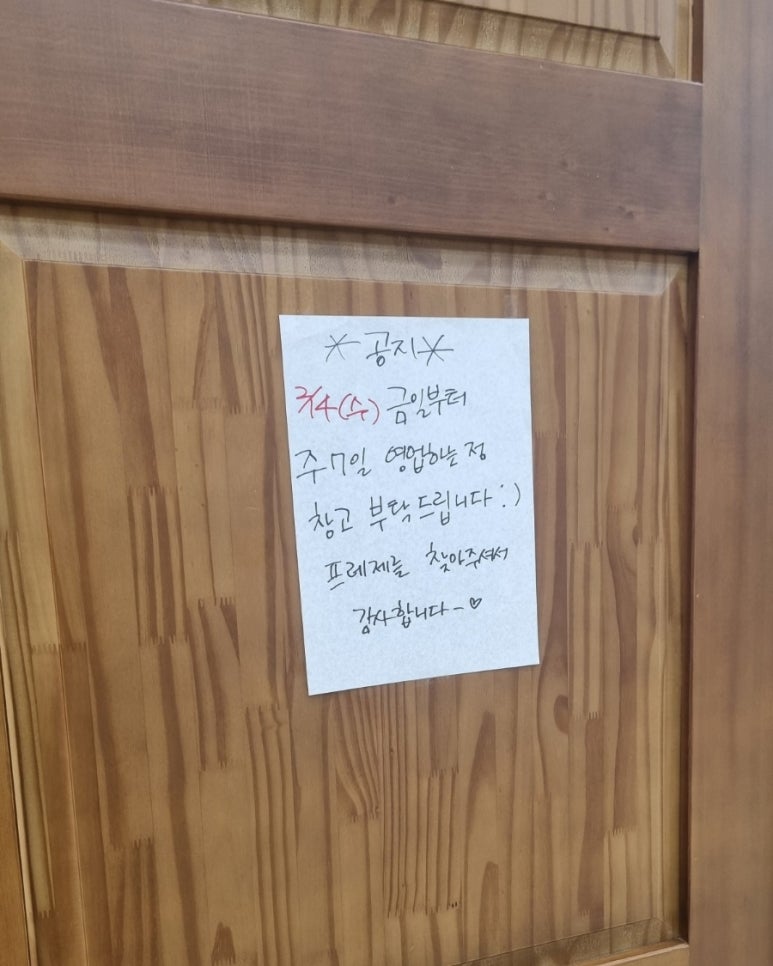 * 공지 *
3/4(수) 금일부터
주 7일 영업하는 점
참고 부탁드립니다 :)
프레제를 찾아주셔서
감사합니다~ ♡